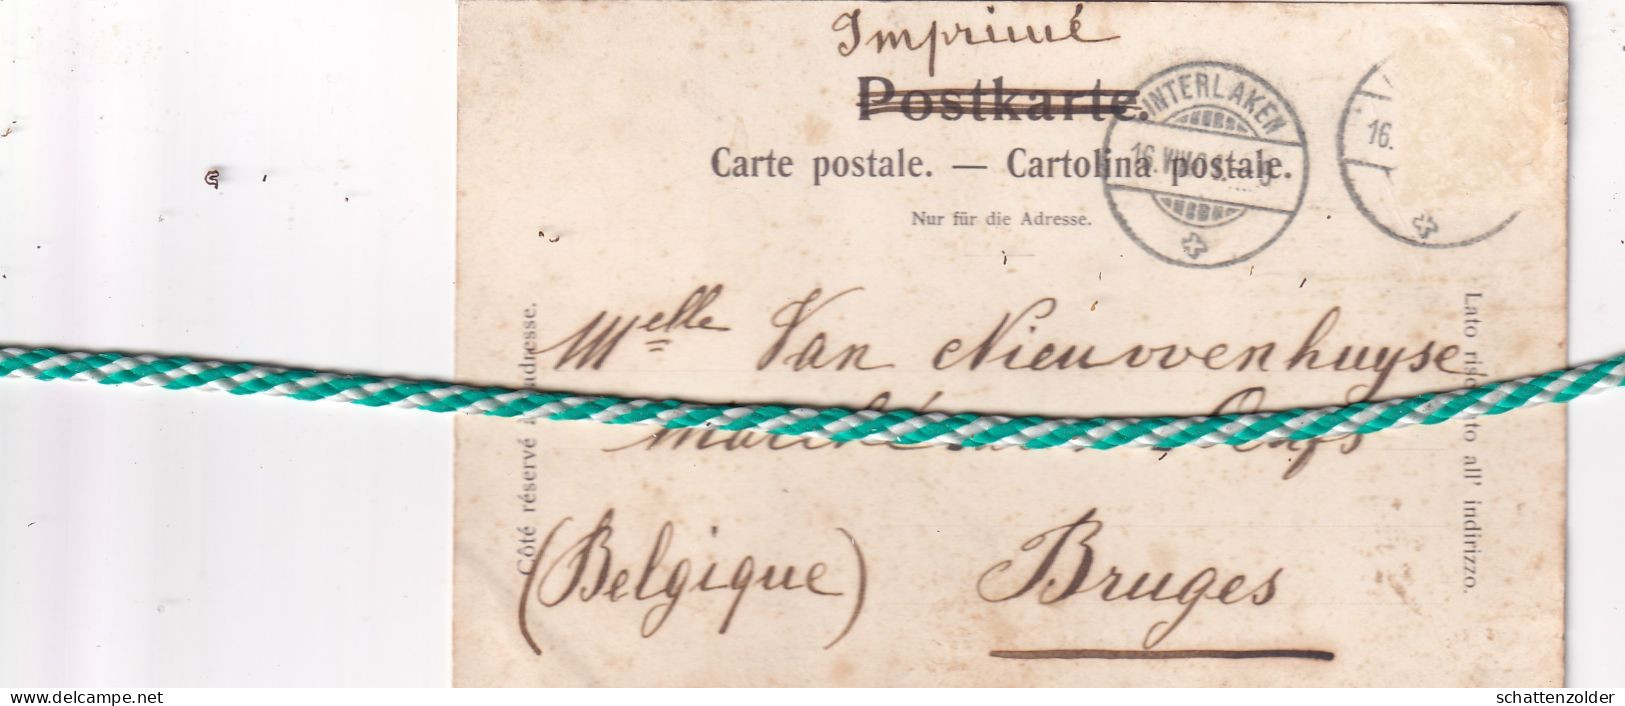 Imprimé
Postkarte.
Carte postale. — Cartolina postale.
Nur für die Adresse.
INTERLAKEN
16.
16.
Côté réservé à l'adresse.
Lato riservato all' indirizzo.
Melle Van Nieuwenhuyse
Marché Oeufs
(Belgique) Bruges
delcampe.net
schattenzolder